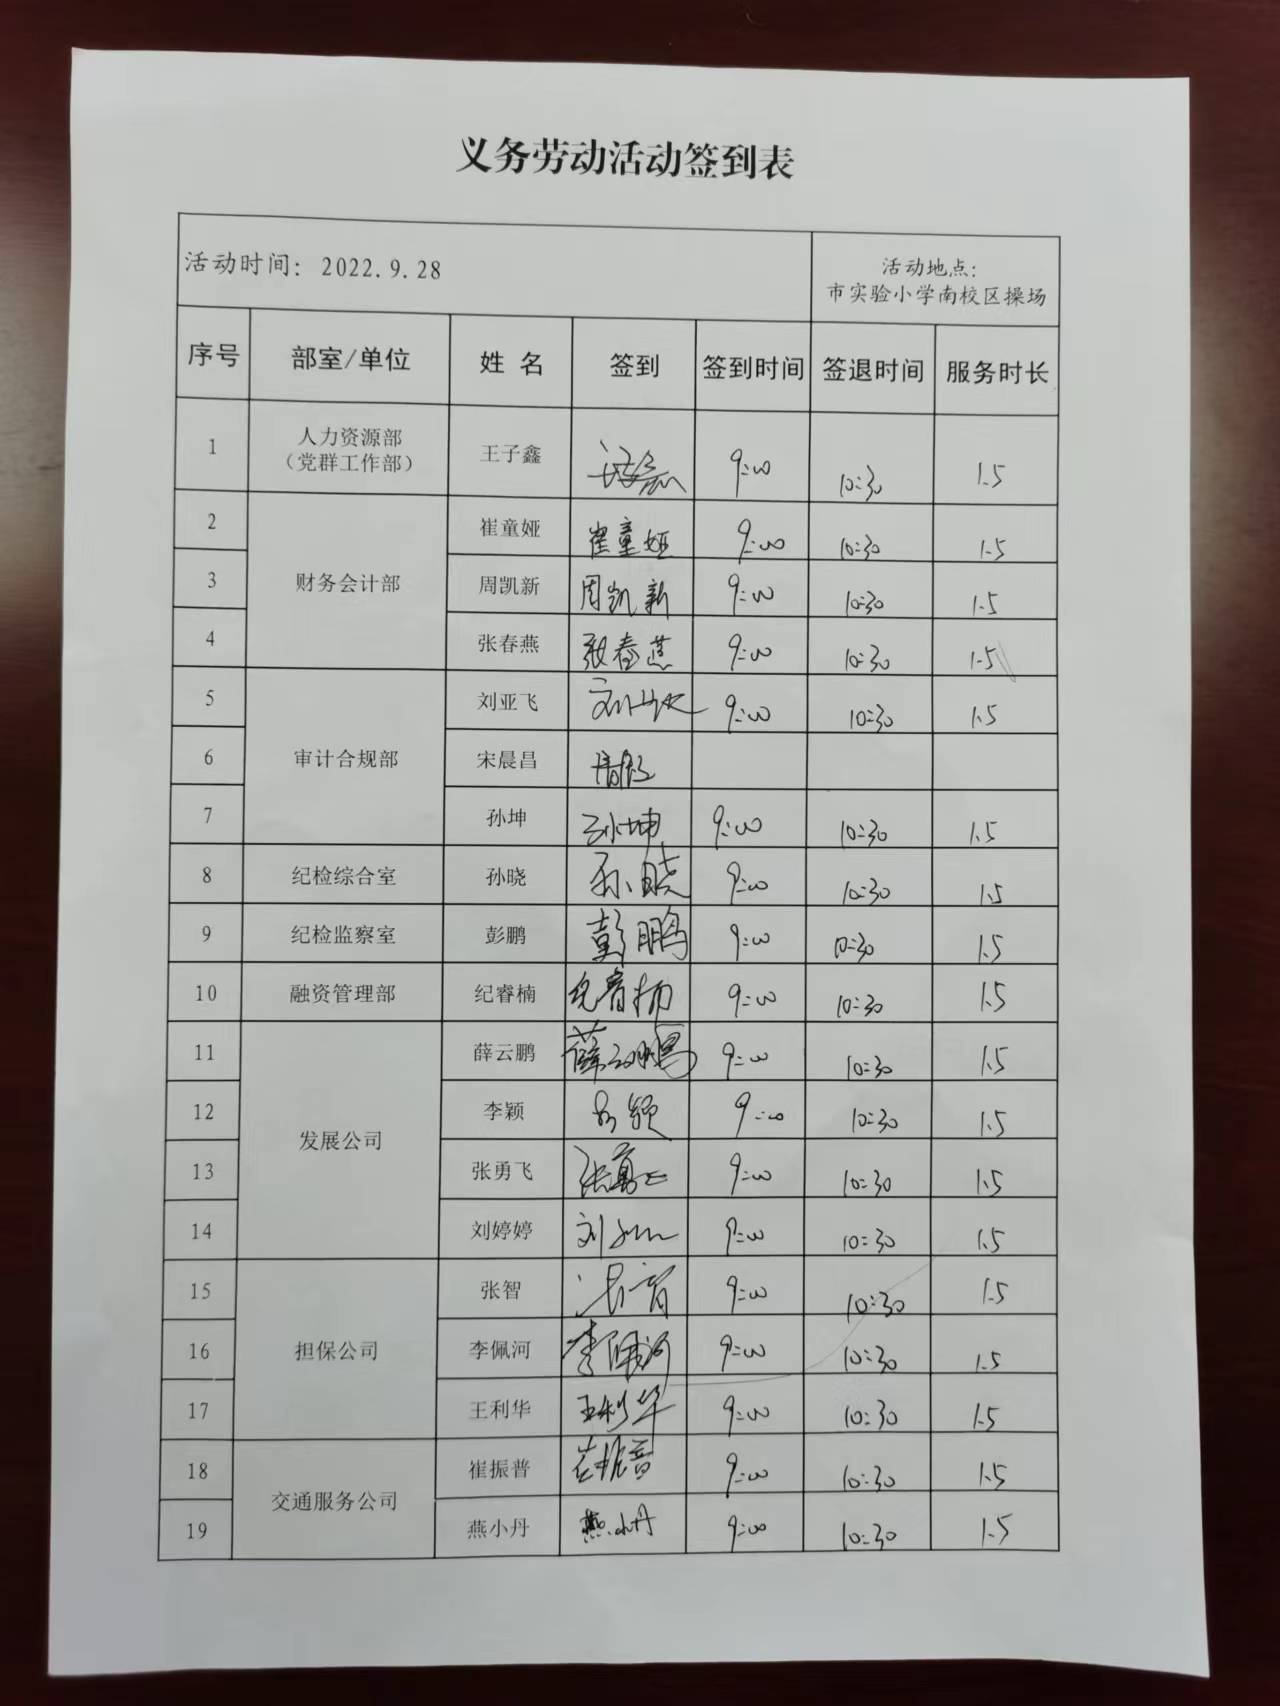 义务劳动活动签到表
活动时间：2022.9.28
活动地点：
市实验小学南校区操场
序号 部室/单位 姓名 签到 签到时间 签退时间 服务时长
1 人力资源部
（党群工作部） 王子鑫 9:00 10:30 1.5
2 财务会计部 崔童娅 崔童娅 9:00 10:30 1.5
3 周凯新 周凯新 9:00 10:30 1.5
4 张春燕 张春燕 9:00 10:30 1.5
5 审计合规部 刘亚飞 刘亚飞 9:00 10:30 1.5
6 宋晨昌 请假
7 孙坤 孙坤 9:00 10:30 1.5
8 纪检综合室 孙晓 孙晓 9:00 10:30 1.5
9 纪检监察室 彭鹏 彭鹏 9:00 10:30 1.5
10 融资管理部 纪睿楠 纪睿楠 9:00 10:30 1.5
11 发展公司 薛云鹏 薛云鹏 9:00 10:30 1.5
12 李颖 李颖 9:00 10:30 1.5
13 张勇飞 张勇飞 9:00 10:30 1.5
14 刘婷婷 刘婷婷 9:00 10:30 1.5
15 担保公司 张智 张智 9:00 10:30 1.5
16 李佩河 李佩河 9:00 10:30 1.5
17 王利华 王利华 9:00 10:30 1.5
18 交通服务公司 崔振普 崔振普 9:00 10:30 1.5
19 燕小丹 燕小丹 9:00 10:30 1.5